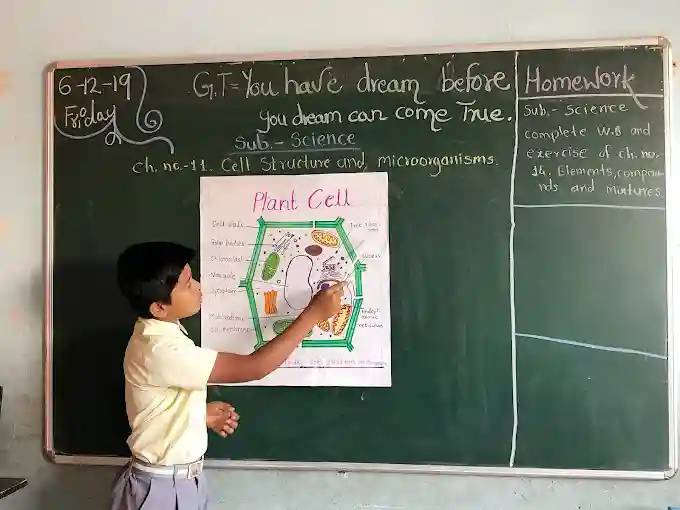 6-12-19
Friday
G.T= You have dream before
you dream can come True.
Sub.- Science
Ch. no.-11. Cell Structure and microorganisms.
Homework
Sub.- Science
complete W.B and
exercise of ch. no.
14. Elements, compou
nds and mixtures
Plant Cell
Cell wall
Golgi bodies
Chloroplast
Vacuole
Cytoplasm
Mitochondria
Cell membrane
Free ribo
somes
Endopl
reticulum